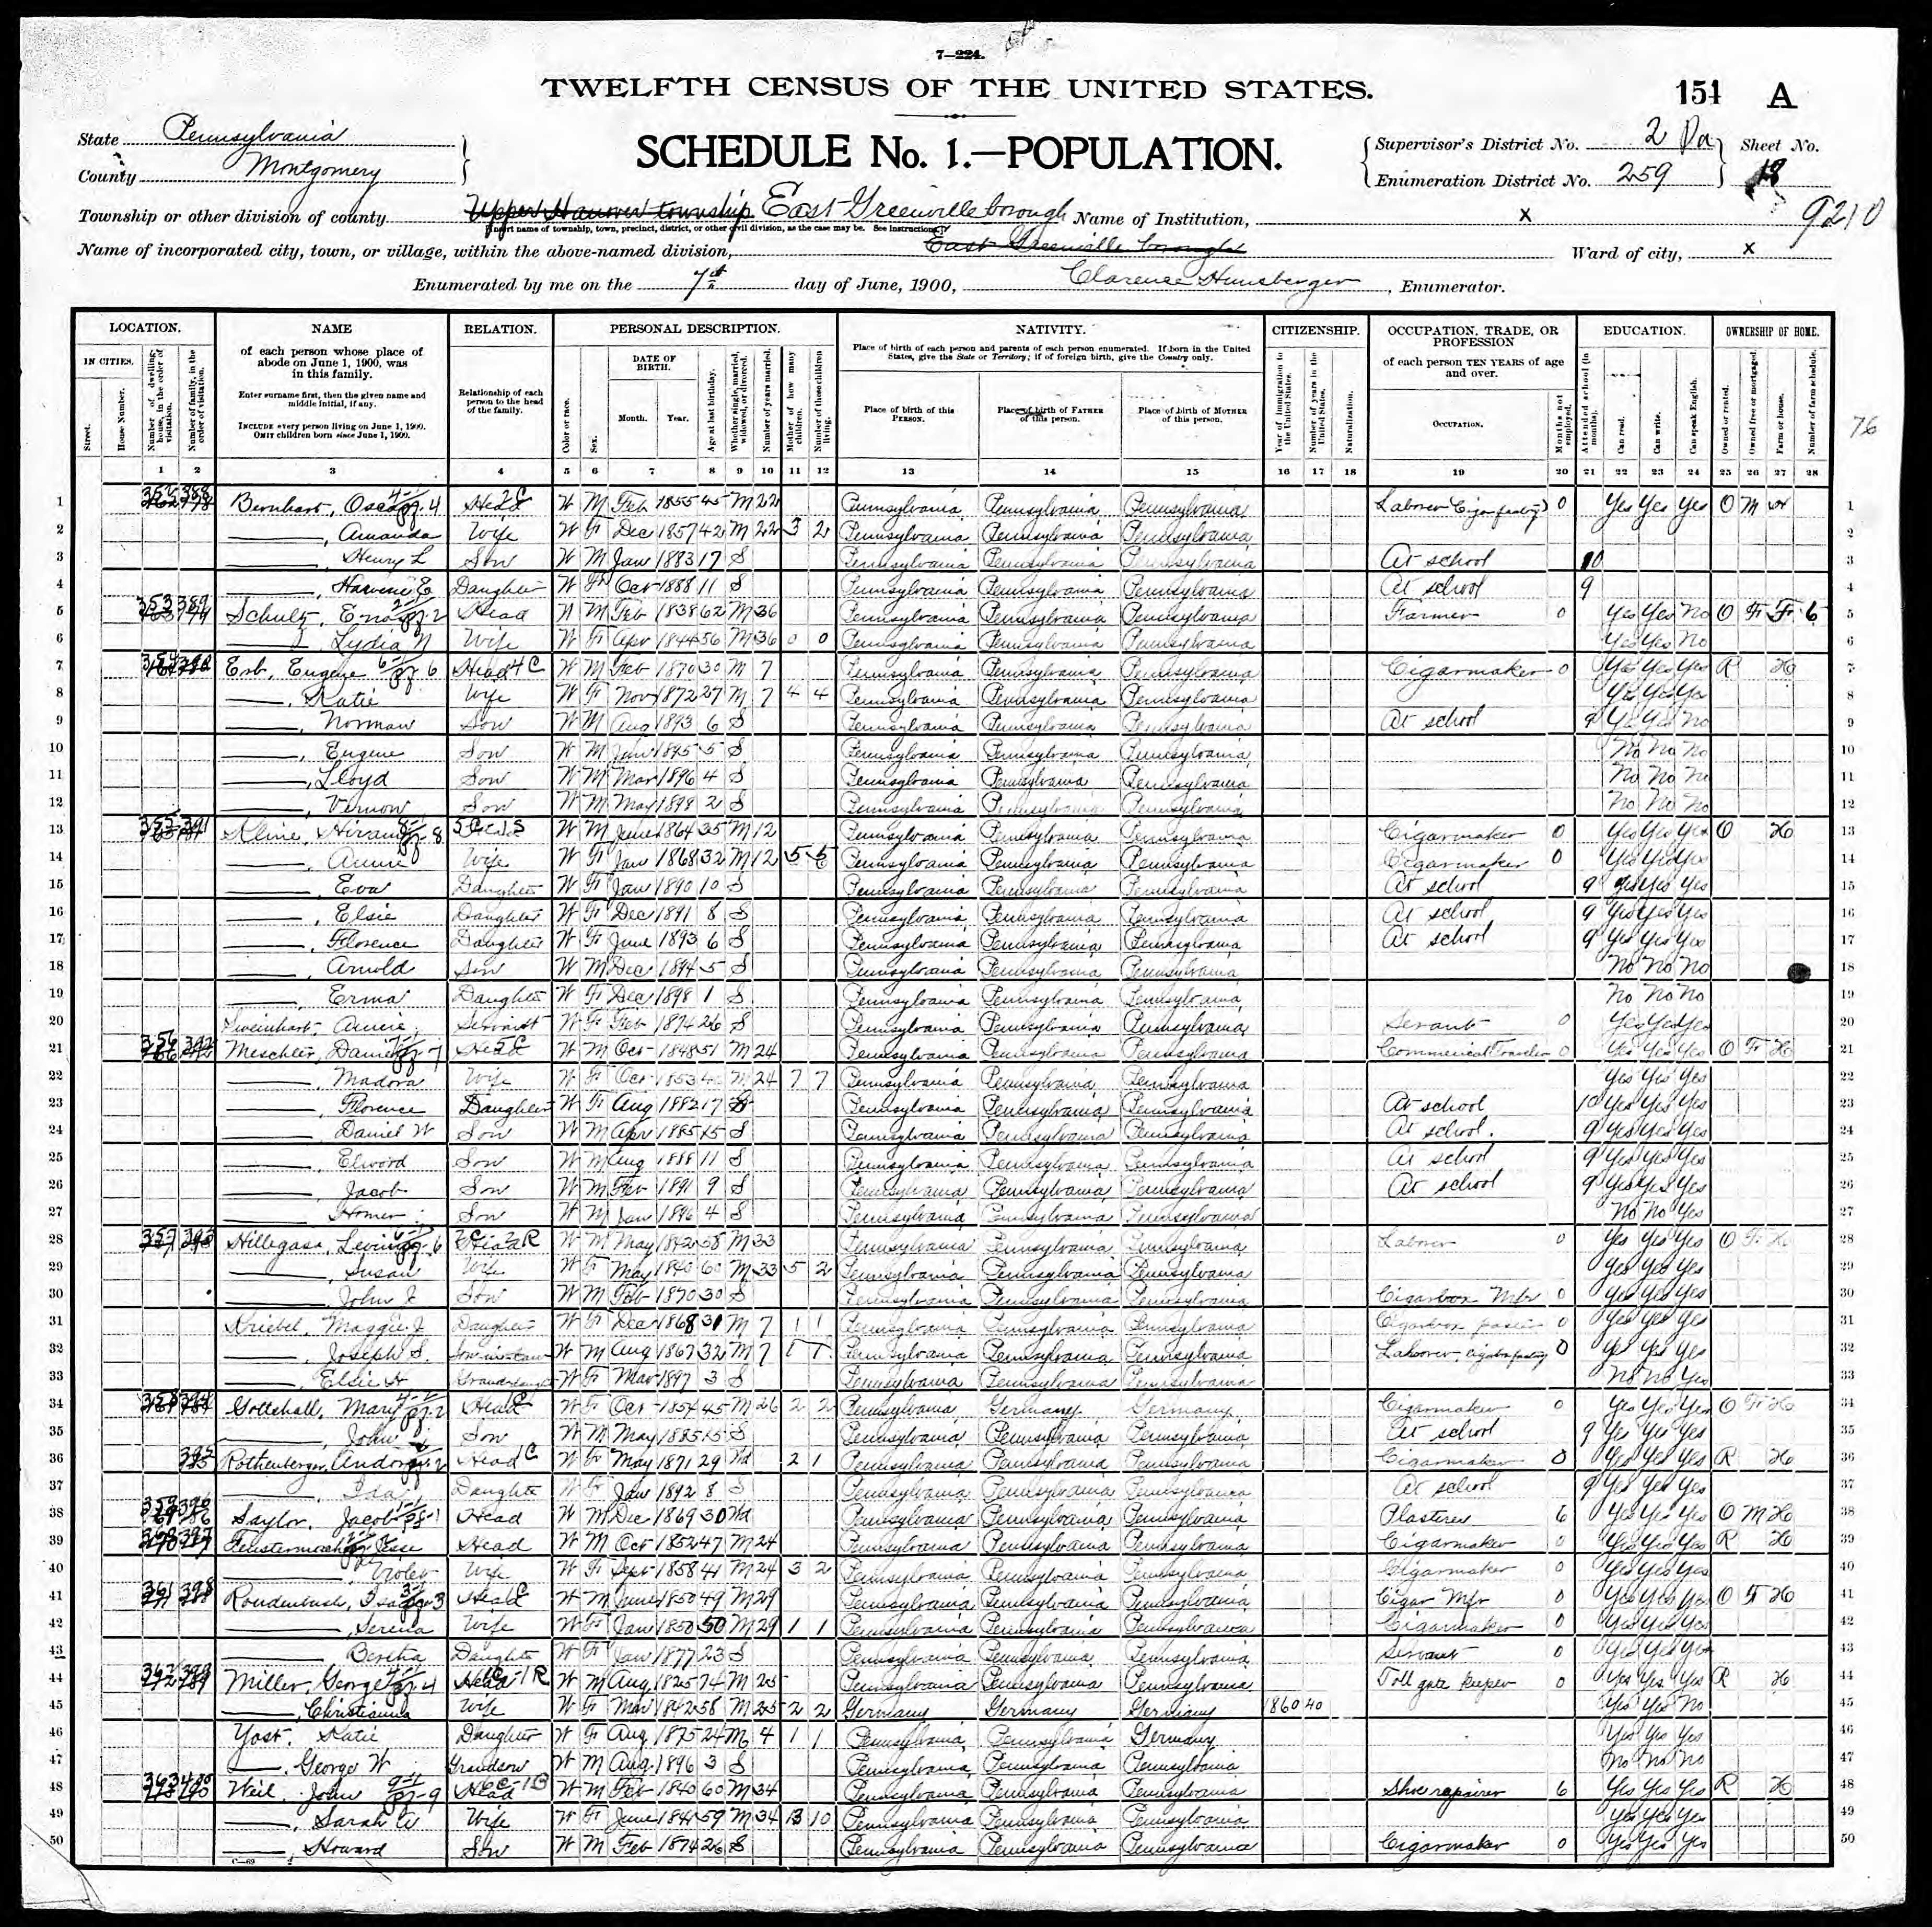 7—224.
TWELFTH CENSUS OF THE UNITED STATES.
151 A
State Pennsylvania
County Montgomery
SCHEDULE No. 1.—POPULATION.
Supervisor's District No. 2 Pa Sheet No.
Enumeration District No. 259
Township or other division of county Upper Hanover township East Greenville borough Name of Institution, X
[Insert name of township, town, precinct, district, or other civil division, as the case may be. See instructions.]
9210
Name of incorporated city, town, or village, within the above-named division, East Greenville borough Ward of city, X
Enumerated by me on the 7th day of June, 1900, Clarence Hunsberger, Enumerator.
LOCATION. NAME RELATION. PERSONAL DESCRIPTION. NATIVITY. CITIZENSHIP. OCCUPATION, TRADE, OR PROFESSION EDUCATION. OWNERSHIP OF HOME.
IN CITIES. Street. House Number. Number of dwelling-house, in the order of visitation. Number of family, in the order of visitation.
of each person whose place of abode on June 1, 1900, was in this family.
Enter surname first, then the given name and middle initial, if any.
INCLUDE every person living on June 1, 1900.
OMIT children born since June 1, 1900.
Relationship of each person to the head of the family.
Color or race. Sex. DATE OF BIRTH. Month. Year. Age at last birthday. Whether single, married, widowed, or divorced. Number of years married. Mother of how many children. Number of these children living.
Place of birth of each person and parents of each person enumerated. If born in the United States, give the State or Territory; if of foreign birth, give the Country only.
Place of birth of this PERSON. Place of birth of FATHER of this person. Place of birth of MOTHER of this person.
Year of immigration to the United States. Number of years in the United States. Naturalization.
of each person TEN YEARS of age and over.
OCCUPATION. Months not employed.
Attended school (in months). Can read. Can write. Can speak English.
Owned or rented. Owned free or mortgaged. Farm or house. Number of farm schedule.
76
1 2 3 4 5 6 7 8 9 10 11 12 13 14 15 16 17 18 19 20 21 22 23 24 25 26 27 28
1 352 388 Bernhart, Oscar Head W M Feb 1855 45 M 22 Pennsylvania Pennsylvania Pennsylvania Laborer (Cigar factory) 0 Yes Yes Yes O M H 1
2 Amanda Wife W F Dec 1857 42 M 22 3 2 Pennsylvania Pennsylvania Pennsylvania 2
3 Henry L Son W M Jan 1883 17 S Pennsylvania Pennsylvania Pennsylvania At school 10 3
4 E Daughter W F Oct 1888 11 S Pennsylvania Pennsylvania Pennsylvania At school 9 4
5 353 389 Schultz, Enos Head W M Feb 1838 62 M 36 Pennsylvania Pennsylvania Pennsylvania Farmer 0 Yes Yes No O F F 6 5
6 Lydia N Wife W F Apr 1844 56 M 36 0 0 Pennsylvania Pennsylvania Pennsylvania Yes Yes No 6
7 354 390 Erb, Eugene Head W M Feb 1870 30 M 7 Pennsylvania Pennsylvania Pennsylvania Cigarmaker 0 Yes Yes Yes R H 7
8 Katie Wife W F Nov 1872 27 M 7 4 4 Pennsylvania Pennsylvania Pennsylvania Yes Yes Yes 8
9 Norman Son W M Aug 1893 6 S Pennsylvania Pennsylvania Pennsylvania At school 9 Yes Yes No 9
10 Eugene Son W M Jan 1895 5 S Pennsylvania Pennsylvania Pennsylvania No No No 10
11 Lloyd Son W M Mar 1896 4 S Pennsylvania Pennsylvania Pennsylvania No No No 11
12 Vernon Son W M May 1898 2 S Pennsylvania Pennsylvania Pennsylvania No No No 12
13 355 391 Kline, Hiram Head W M June 1864 35 M 12 Pennsylvania Pennsylvania Pennsylvania Cigarmaker 0 Yes Yes Yes O H 13
14 Annie Wife W F Jan 1868 32 M 12 5 5 Pennsylvania Pennsylvania Pennsylvania Cigarmaker 0 Yes Yes Yes 14
15 Eva Daughter W F Jan 1890 10 S Pennsylvania Pennsylvania Pennsylvania At school 9 Yes Yes Yes 15
16 Elsie Daughter W F Dec 1891 8 S Pennsylvania Pennsylvania Pennsylvania At school 9 Yes Yes Yes 16
17 Florence Daughter W F June 1893 6 S Pennsylvania Pennsylvania Pennsylvania At school 9 Yes Yes Yes 17
18 Arnold Son W M Dec 1894 5 S Pennsylvania Pennsylvania Pennsylvania No No No 18
19 Erma Daughter W F Dec 1898 1 S Pennsylvania Pennsylvania Pennsylvania No No No 19
20 Annie Servant W F Feb 1874 26 S Pennsylvania Pennsylvania Pennsylvania Servant 0 Yes Yes Yes 20
21 356 392 Meschter, Daniel Head W M Oct 1848 51 M 24 Pennsylvania Pennsylvania Pennsylvania Commercial Traveler 0 Yes Yes Yes O F H 21
22 Madora Wife W F Oct 1853 46 M 24 7 7 Pennsylvania Pennsylvania Pennsylvania Yes Yes Yes 22
23 Florence Daughter W F Aug 1882 17 S Pennsylvania Pennsylvania Pennsylvania At school 10 Yes Yes Yes 23
24 Daniel W Son W M Apr 1885 15 S Pennsylvania Pennsylvania Pennsylvania At school. 9 Yes Yes Yes 24
25 Elwood Son W M Aug 1888 11 S Pennsylvania Pennsylvania Pennsylvania At school 9 Yes Yes Yes 25
26 Jacob Son W M Feb 1891 9 S Pennsylvania Pennsylvania Pennsylvania At school 9 Yes Yes Yes 26
27 Homer Son W M Jan 1896 4 S Pennsylvania Pennsylvania Pennsylvania No No Yes 27
28 357 393 Hillegass, Levi Head W M May 1842 58 M 33 Pennsylvania Pennsylvania Pennsylvania Laborer 0 Yes Yes Yes O F H 28
29 Susan Wife W F May 1840 60 M 33 5 2 Pennsylvania Pennsylvania Pennsylvania Yes Yes Yes 29
30 John J. Son W M Feb 1870 30 S Pennsylvania Pennsylvania Pennsylvania Cigarbox Mfr 0 Yes Yes Yes 30
31 Kriebel, Maggie J Daughter W F Dec 1868 31 M 7 1 1 Pennsylvania Pennsylvania Pennsylvania Cigarbox paster 0 Yes Yes Yes 31
32 Joseph S. Son-in-law W M Aug 1867 32 M 7 1 1 Pennsylvania Pennsylvania Pennsylvania Laborer, cigarbox factory 0 Yes Yes Yes 32
33 Elsie H Granddaughter W F Mar 1897 3 S Pennsylvania Pennsylvania Pennsylvania No No Yes 33
34 358 394 Gottshall, Mary Head W F Oct 1854 45 M 26 2 2 Pennsylvania Germany Germany Cigarmaker 0 Yes Yes Yes O F H 34
35 John Son W M May 1885 15 S Pennsylvania Pennsylvania Pennsylvania At school 9 Yes Yes Yes 35
36 395 Rothenberger, Head W F May 1871 29 Wd 2 1 Pennsylvania Pennsylvania Pennsylvania Cigarmaker 0 Yes Yes Yes R H 36
37 Ida Daughter W F Jan 1892 8 S Pennsylvania Pennsylvania Pennsylvania At school 9 Yes Yes Yes 37
38 359 396 Saylor, Jacob Head W M Dec 1869 30 Wd Pennsylvania Pennsylvania Pennsylvania Plasterer 6 Yes Yes Yes O M H 38
39 360 397 Fenstermacher, Jesse Head W M Oct 1852 47 M 24 Pennsylvania Pennsylvania Pennsylvania Cigarmaker 0 Yes Yes Yes R H 39
40 Violet Wife W F Sept 1858 41 M 24 3 2 Pennsylvania Pennsylvania Pennsylvania Cigarmaker 0 Yes Yes Yes 40
41 361 398 Roudenbush, Isaac Head W M June 1850 49 M 29 Pennsylvania Pennsylvania Pennsylvania Cigar Mfr 0 Yes Yes Yes O F H 41
42 Serena Wife W F Jan 1850 50 M 29 1 1 Pennsylvania Pennsylvania Pennsylvania Cigarmaker 0 Yes Yes Yes 42
43 Bertha Daughter W F Jan 1877 23 S Pennsylvania Pennsylvania Pennsylvania Servant 0 Yes Yes Yes 43
44 362 399 Miller, George Head W M Aug 1825 74 M 25 Pennsylvania Pennsylvania Pennsylvania Toll gate keeper 0 Yes Yes Yes R H 44
45 Christianna Wife W F Mar 1842 58 M 25 2 2 Germany Germany Germany 1860 40 Yes Yes No 45
46 Yost, Katie Daughter W F Aug 1875 24 M 4 1 1 Pennsylvania Pennsylvania Germany Yes Yes Yes 46
47 George W Grandson W M Aug 1896 3 S Pennsylvania Pennsylvania Pennsylvania No No No 47
48 363 400 Weil, John Head W M Feb 1840 60 M 34 Pennsylvania Pennsylvania Pennsylvania Shoe repairer 6 Yes Yes Yes R H 48
49 Sarah A Wife W F June 1841 59 M 34 13 10 Pennsylvania Pennsylvania Pennsylvania Yes Yes Yes 49
50 Howard Son W M Feb 1874 26 S Pennsylvania Pennsylvania Pennsylvania Cigarmaker 0 Yes Yes Yes 50
C—69